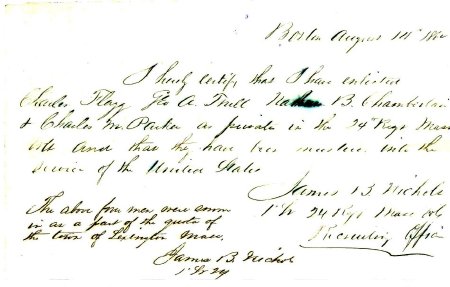 Boston August 14th 1862
I hereby certify that I have enlisted
Charles Flagg Geo A. Twill Nathan B. Chamberlain
& Charles M. Parker as private in the 24 Regt Mass
vols And that they have been mustered into the
service of the United States
James B. Nichols
1st Lt 24 Regt Mass vols
Recruiting Officer
The above four men were sworn
in as a part of the quota of
the town of Lexington Mass.
James B. Nichols
1 Lt 24